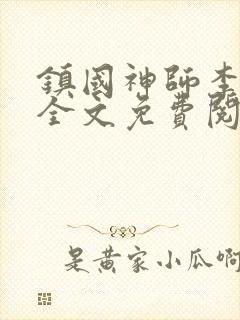 鎮國神師李
全文免費閱
是黃家小瓜啊